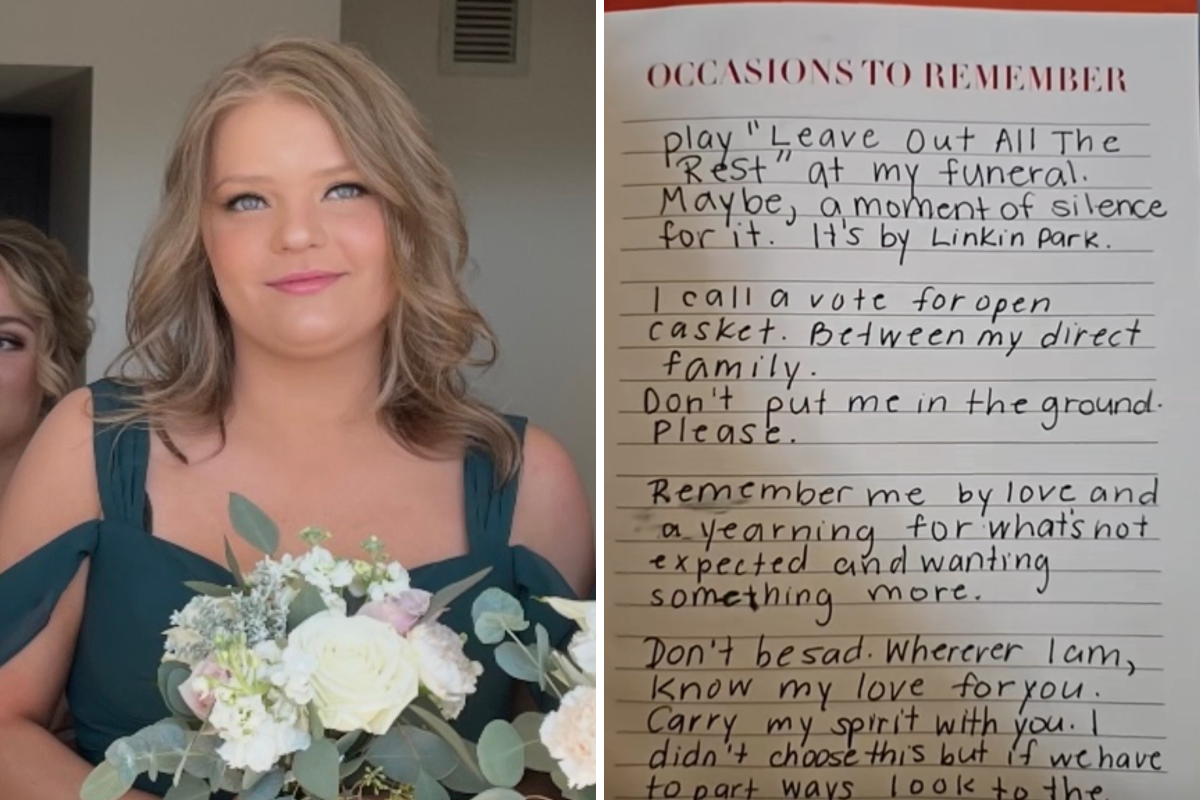 OCCASIONS TO REMEMBER
play "Leave Out All The
Rest" at my funeral.
Maybe, a moment of silence
for it. It's by Linkin Park.
I call a vote for open
casket. Between my direct
family.
Don't put me in the ground.
Please.
Remember me by love and
a yearning for what's not
expected and wanting
something more.
Don't be sad. Wherever I am,
Know my love for you.
Carry my spirit with you. I
didn't choose this but if we have
to part ways look to the